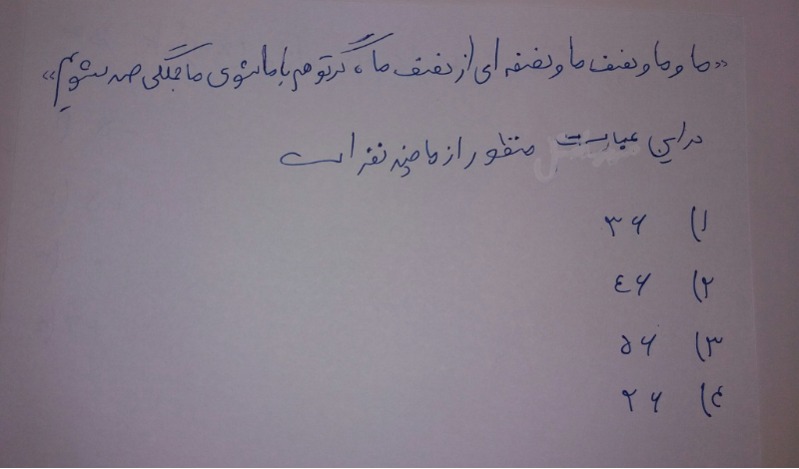 «ما و ما و نصف ما و نصفه ای از نصف ما ، گر تو هم با ما شوی ما جملگی صد بشویم»
در این عبارت منظور از ما چند نفر است
۱) ۳۶
۲) ٤۶
۳) ۵۶
٤) ۲۶